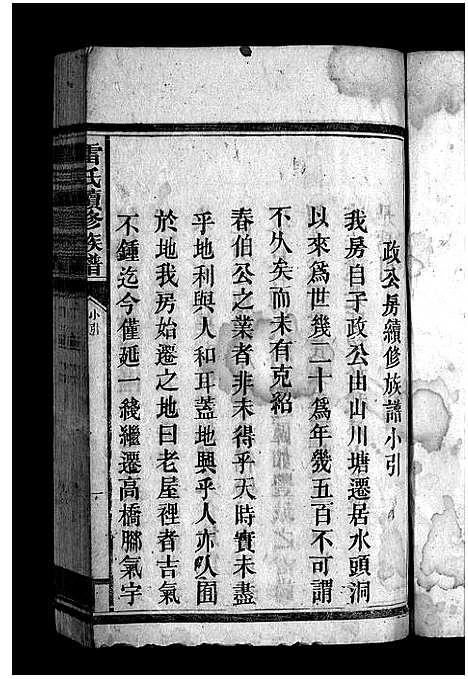 政公房續修族譜小引
我房自子政公由山川塘遷居水頭洞
以來爲世幾二十爲年幾五百不可謂
不久矣而未有克紹
春伯公之業者非未得乎天時實未盡
乎地利與人和耳蓋地興乎人亦人囿
於地我房始遷之地曰老屋裡者吉氣
不鍾迄今僅延一綫繼遷高橋腳氣宇
雷氏續修族譜
小引